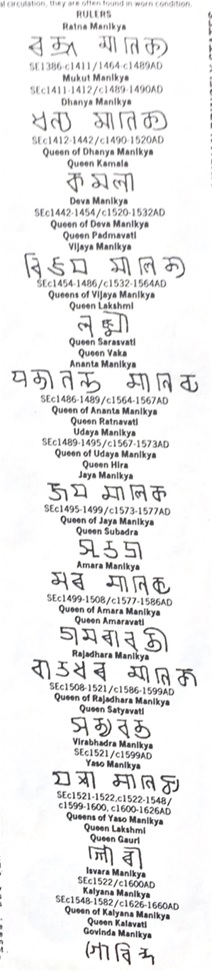 al circulation, they are often found in worn condition.
RULERS
Ratna Manikya
SE1386-c1411/1464-c1489AD
Mukut Manikya
SEc1411-1412/c1489-1490AD
Dhanya Manikya
ধন্য মানিক্য
SEc1412-1442/c1490-1520AD
Queen of Dhanya Manikya
Queen Kamala
কমলা
Deva Manikya
SEc1442-1454/c1520-1532AD
Queen of Deva Manikya
Queen Padmavati
Vijaya Manikya
বিজয় মানিক্য
SEc1454-1486/c1532-1564AD
Queens of Vijaya Manikya
Queen Lakshmi
লক্ষ্মী
Queen Sarasvati
Queen Vaka
Ananta Manikya
SEc1486-1489/c1564-1567AD
Queen of Ananta Manikya
Queen Ratnavati
Udaya Manikya
SEc1489-1495/c1567-1573AD
Queen of Udaya Manikya
Queen Hira
Jaya Manikya
জয় মানিক
SEc1495-1499/c1573-1577AD
Queen of Jaya Manikya
Queen Subadra
Amara Manikya
SEc1499-1508/c1577-1586AD
Queen of Amara Manikya
Queen Amaravati
Rajadhara Manikya
SEc1508-1521/c1586-1599AD
Queen of Rajadhara Manikya
Queen Satyavati
Virabhadra Manikya
SEc1521/c1599AD
Yaso Manikya
SEc1521-1522,c1522-1548/
c1599-1600, c1600-1626AD
Queens of Yaso Manikya
Queen Lakshmi
Queen Gauri
Isvara Manikya
SEc1522/c1600AD
Kalyana Manikya
SEc1548-1582/c1626-1660AD
Queen of Kalyana Manikya
Queen Kalavati
Govinda Manikya